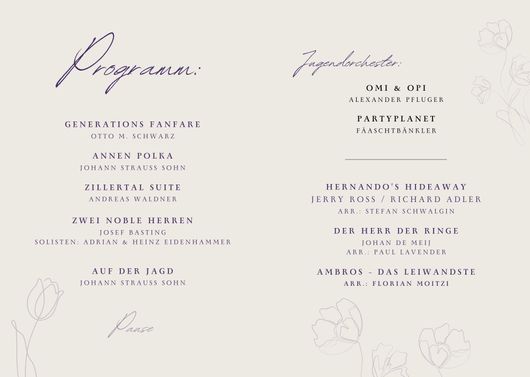 Programm:
GENERATIONS FANFARE
OTTO M. SCHWARZ
ANNEN POLKA
JOHANN STRAUSS SOHN
ZILLERTAL SUITE
ANDREAS WALDNER
ZWEI NOBLE HERREN
JOSEF BASTING
SOLISTEN: ADRIAN & HEINZ EIDENHAMMER
AUF DER JAGD
JOHANN STRAUSS SOHN
Pause
Jugendorchester:
OMI & OPI
ALEXANDER PFLUGER
PARTYPLANET
FÄASCHTBÄNKLER
HERNANDO'S HIDEAWAY
JERRY ROSS / RICHARD ADLER
ARR.: STEFAN SCHWALGIN
DER HERR DER RINGE
JOHAN DE MEIJ
ARR.: PAUL LAVENDER
AMBROS - DAS LEIWANDSTE
ARR.: FLORIAN MOITZI